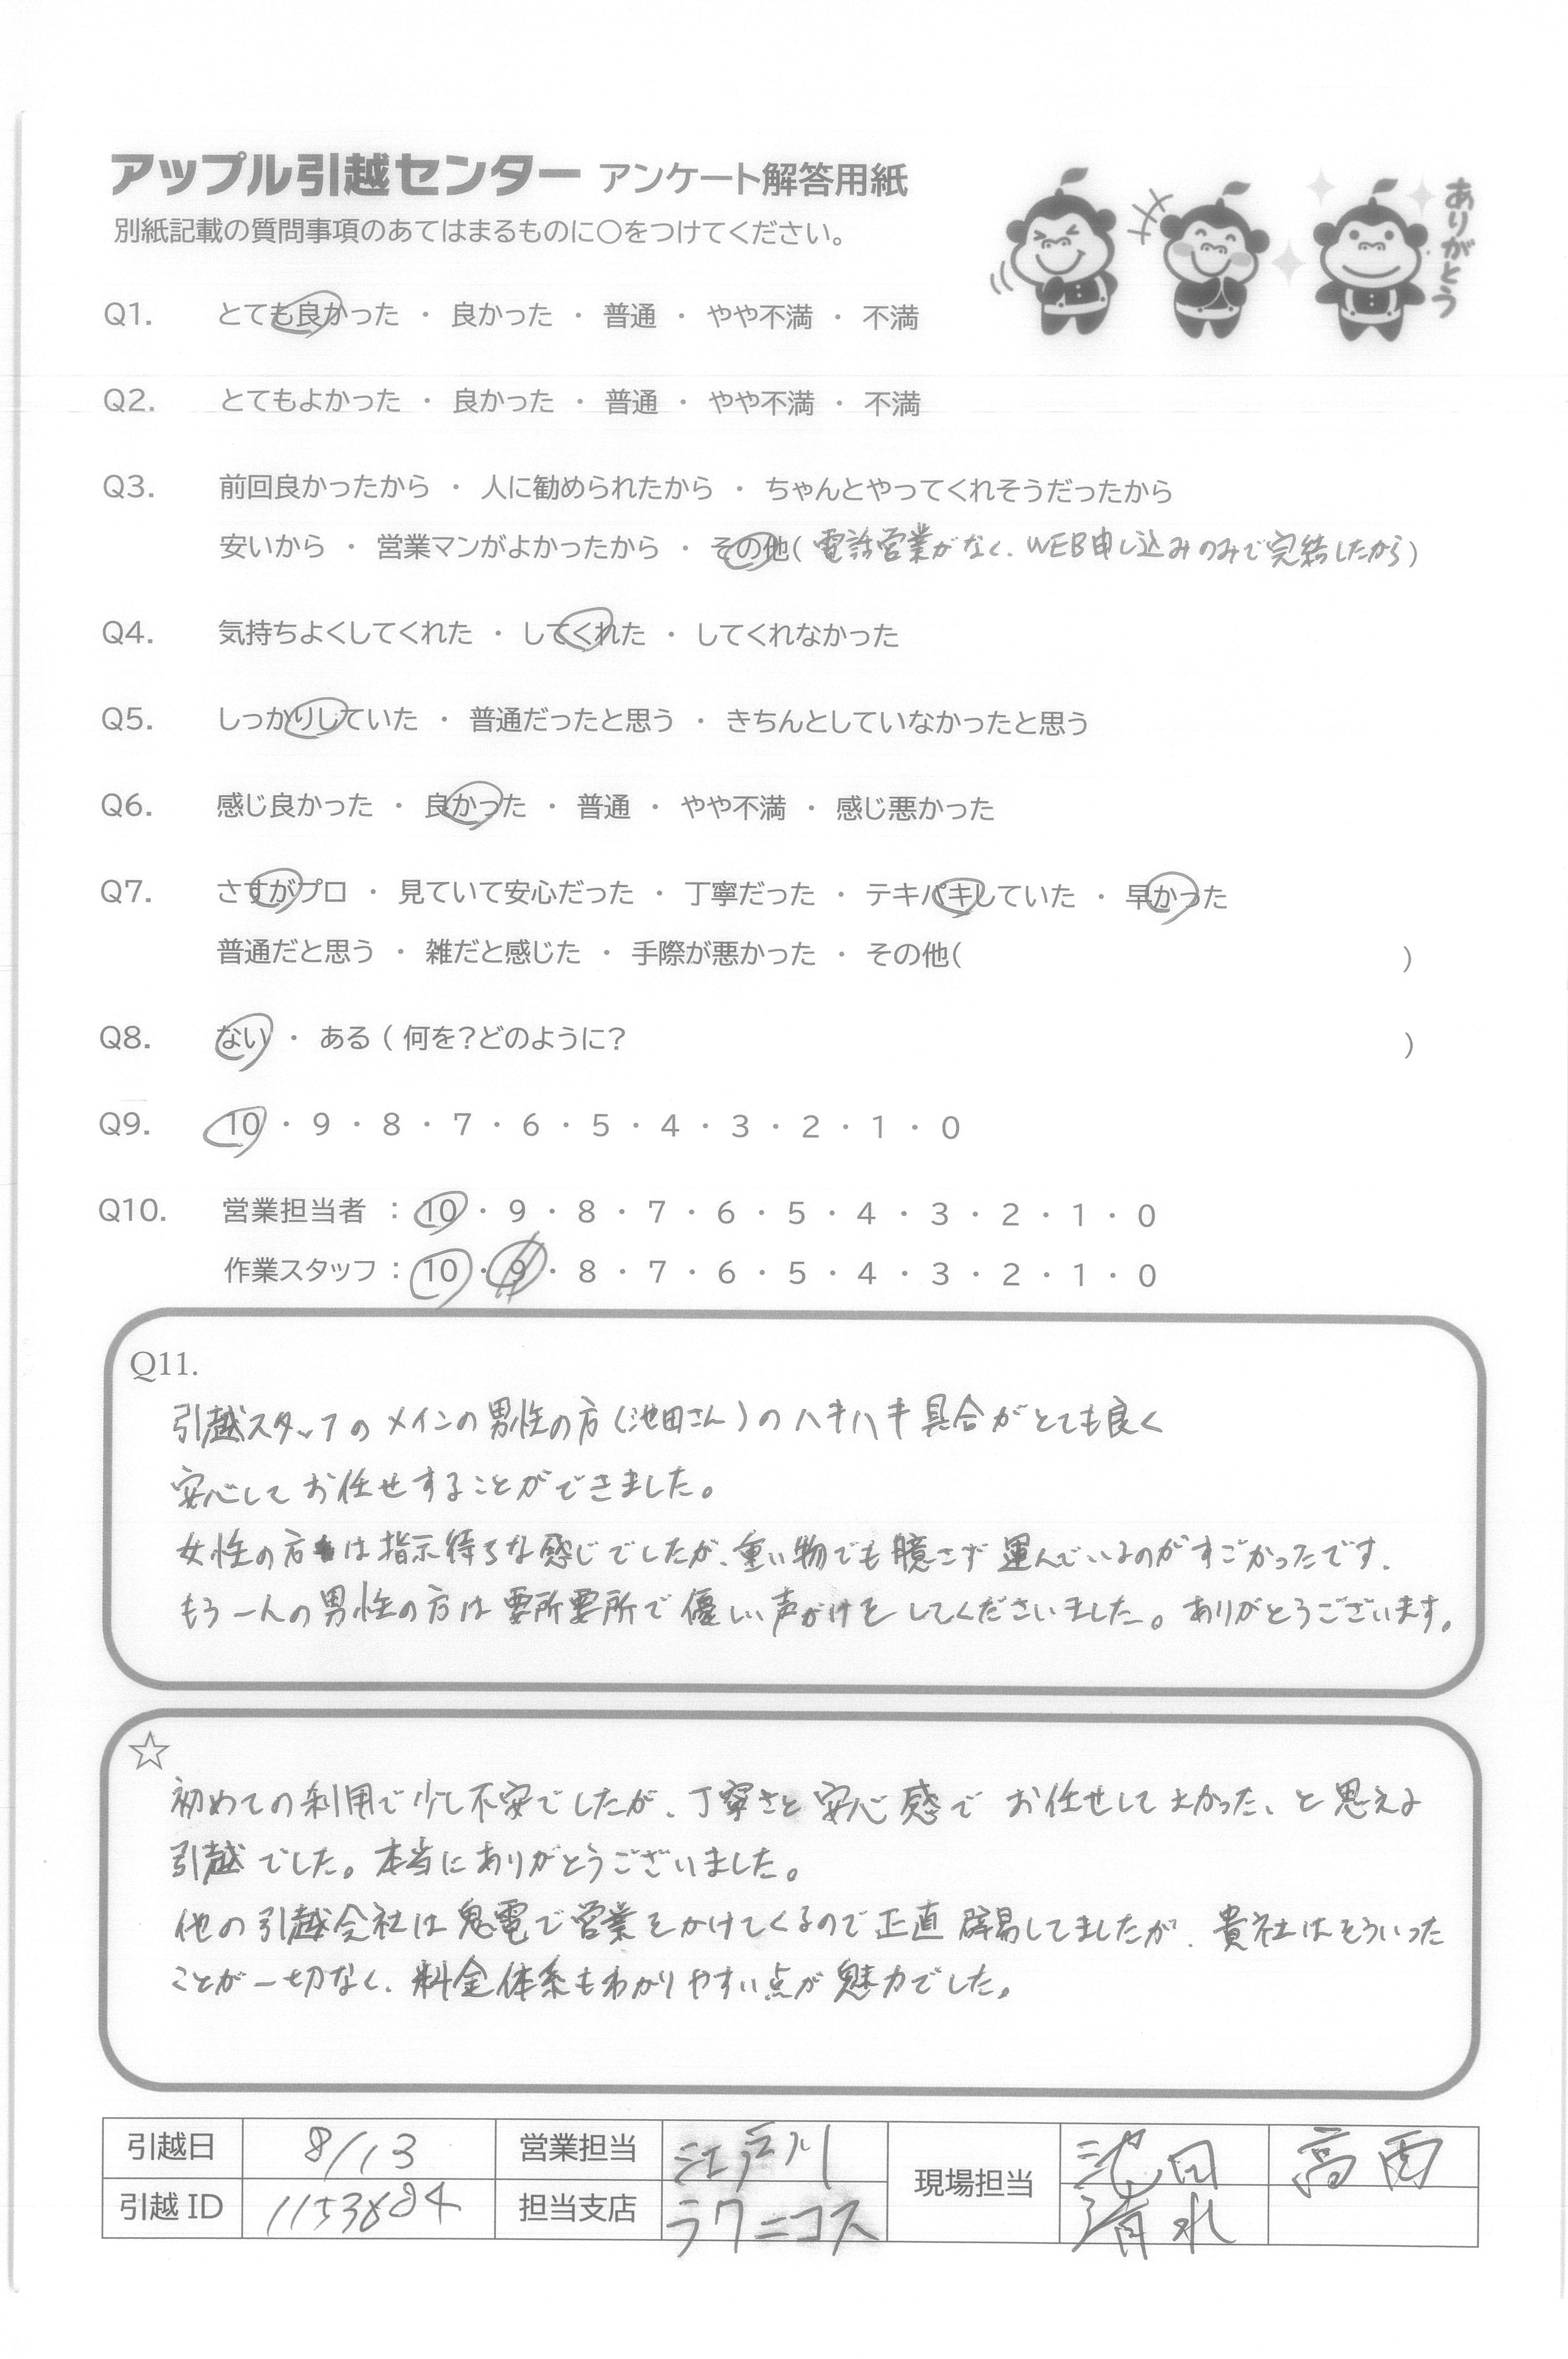 アップル引越センター アンケート解答用紙
ありがとう
別紙記載の質問事項のあてはまるものに〇をつけてください。
Q1. とても良かった ・ 良かった ・ 普通 ・ やや不満 ・ 不満
Q2. とてもよかった ・ 良かった ・ 普通 ・ やや不満 ・ 不満
Q3. 前回良かったから ・ 人に勧められたから ・ ちゃんとやってくれそうだったから
安いから ・ 営業マンがよかったから ・ その他( 電話営業がなく、WEB申し込みのみで完結したから)
Q4. 気持ちよくしてくれた ・ してくれた ・ してくれなかった
Q5. しっかりしていた ・ 普通だったと思う ・ きちんとしていなかったと思う
Q6. 感じ良かった ・ 良かった ・ 普通 ・ やや不満 ・ 感じ悪かった
Q7. さすがプロ ・ 見ていて安心だった ・ 丁寧だった ・ テキパキしていた ・ 早かった
普通だと思う ・ 雑だと感じた ・ 手際が悪かった ・ その他( )
Q8. ない ・ ある ( 何を?どのように? )
Q9. 10 ・ 9 ・ 8 ・ 7 ・ 6 ・ 5 ・ 4 ・ 3 ・ 2 ・ 1 ・ 0
Q10. 営業担当者 : 10 ・ 9 ・ 8 ・ 7 ・ 6 ・ 5 ・ 4 ・ 3 ・ 2 ・ 1 ・ 0
作業スタッフ : 10 ・ 9 ・ 8 ・ 7 ・ 6 ・ 5 ・ 4 ・ 3 ・ 2 ・ 1 ・ 0
Q11.
引越スタッフのメインの男性の方(池田さん)のハキハキ具合がとても良く
安心してお任せすることができました。
女性の方は指示待ちな感じでしたが、重い物でも臆さず運んでいるのがすごかったです。
もう一人の男性の方は要所要所で優しい声がけをしてくださいました。ありがとうございます。
☆
初めての利用で少し不安でしたが、丁寧さと安心感でお任せしてよかった、と思える
引越でした。本当にありがとうございました。
他の引越会社は鬼電で営業をかけてくるので正直辟易してましたが、貴社はそういった
ことが一切なく、料金体系もわかりやすい点が魅力でした。
引越日 8/13 営業担当 江戸川 現場担当 池田 高西
引越ID 1153684 担当支店 ラクニコス 清水